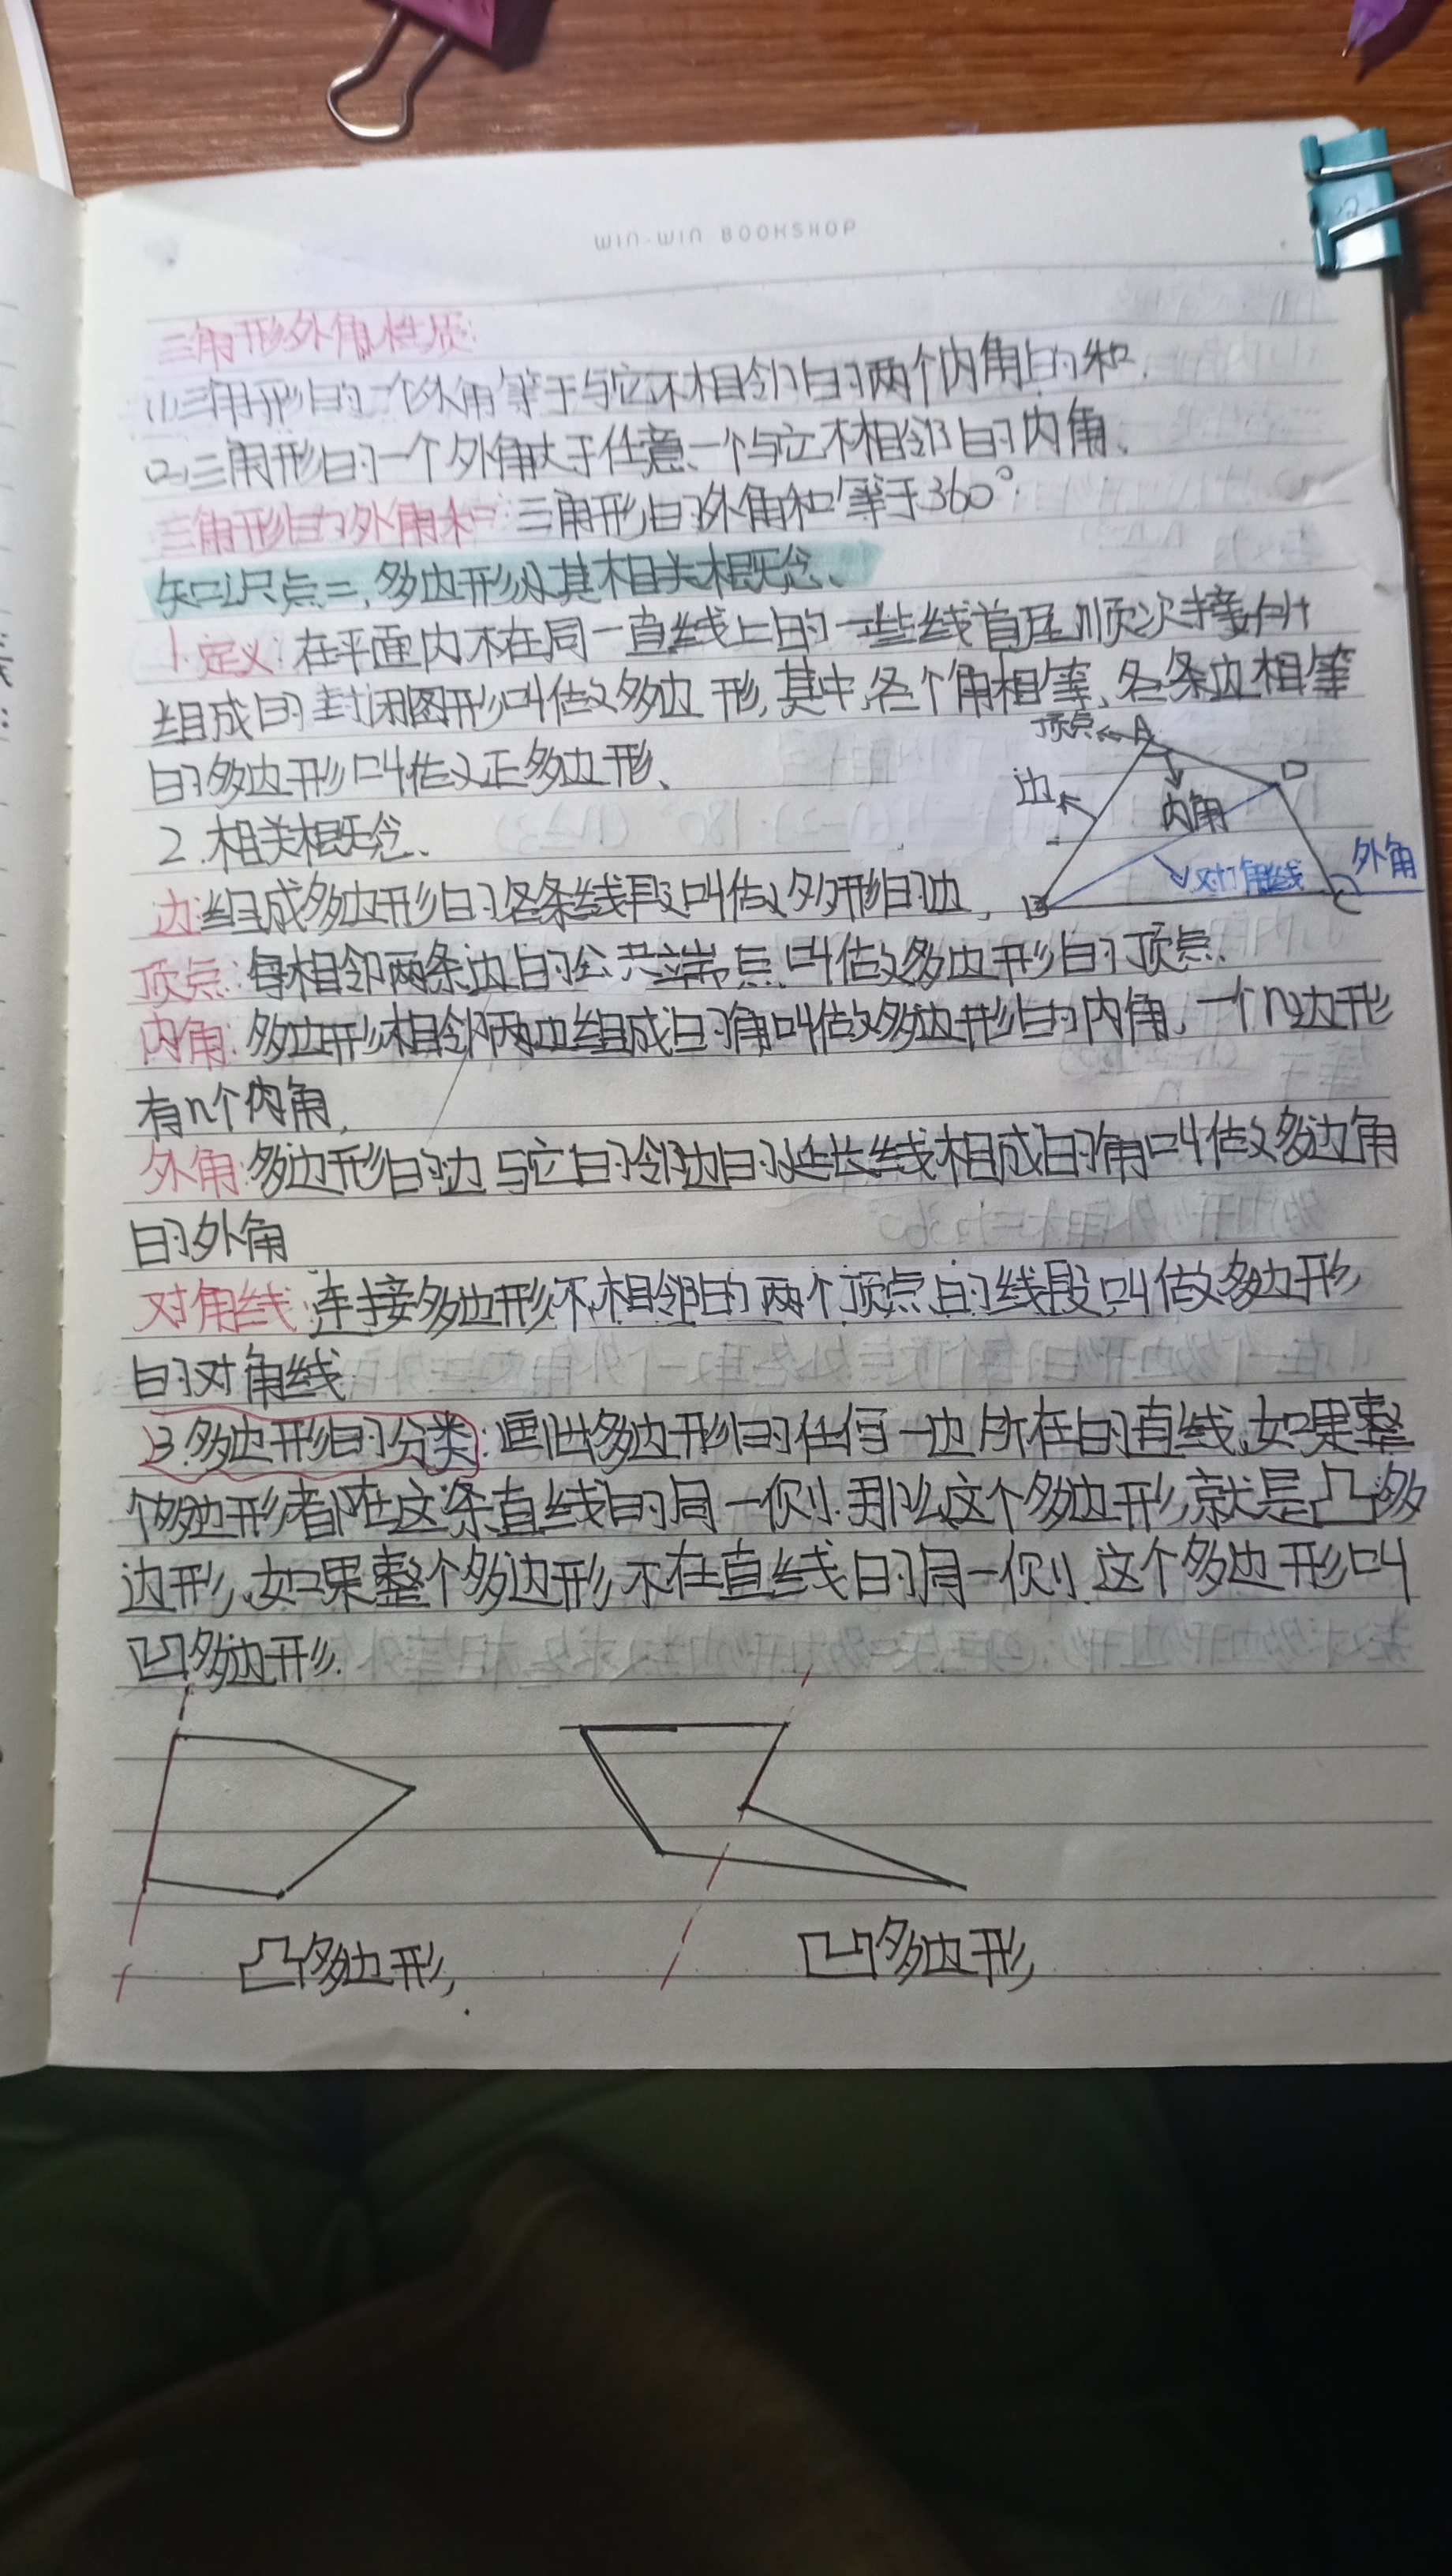 WIN-WIN BOOKSHOP
三角形外角性质:
(1)三角形的一个外角等于与它不相邻的两个内角的和.
(2)三角形的一个外角大于任意一个与它不相邻的内角、
三角形的外角和:三角形的外角和等于360°
知识点二,多边形及其相关概念、
1.定义:在平面内不在同一直线上的一些线首尾顺次接
组成的封闭图形叫做多边形,其中,各个角相等、各条边相等
的多边形叫做正多边形、
顶点 A
边
内角
D
对角线
外角
B
C
2.相关概念、
边:组成多边形的各条线段叫做多形的边,
顶点:每相邻两条边的公共端点叫做多边形的顶点.
内角:多边形相邻两边组成的角叫做多边形的内角,一个n边形
有n个内角,
外角:多边形的边与它的邻边的延长线相成的角叫做多边角
的外角
对角线:连接多边形不相邻的两个顶点的线段,叫做多边形
的对角线
3.多边形的分类:画出多边形的任何一边所在的直线,如果整
个多边形都在这条直线的同一侧.那么这个多边形,就是凸多
边形,如果整个多边形,不在直线的同一侧,这个多边形叫
凹多边形.
凸多边形,
凹多边形,